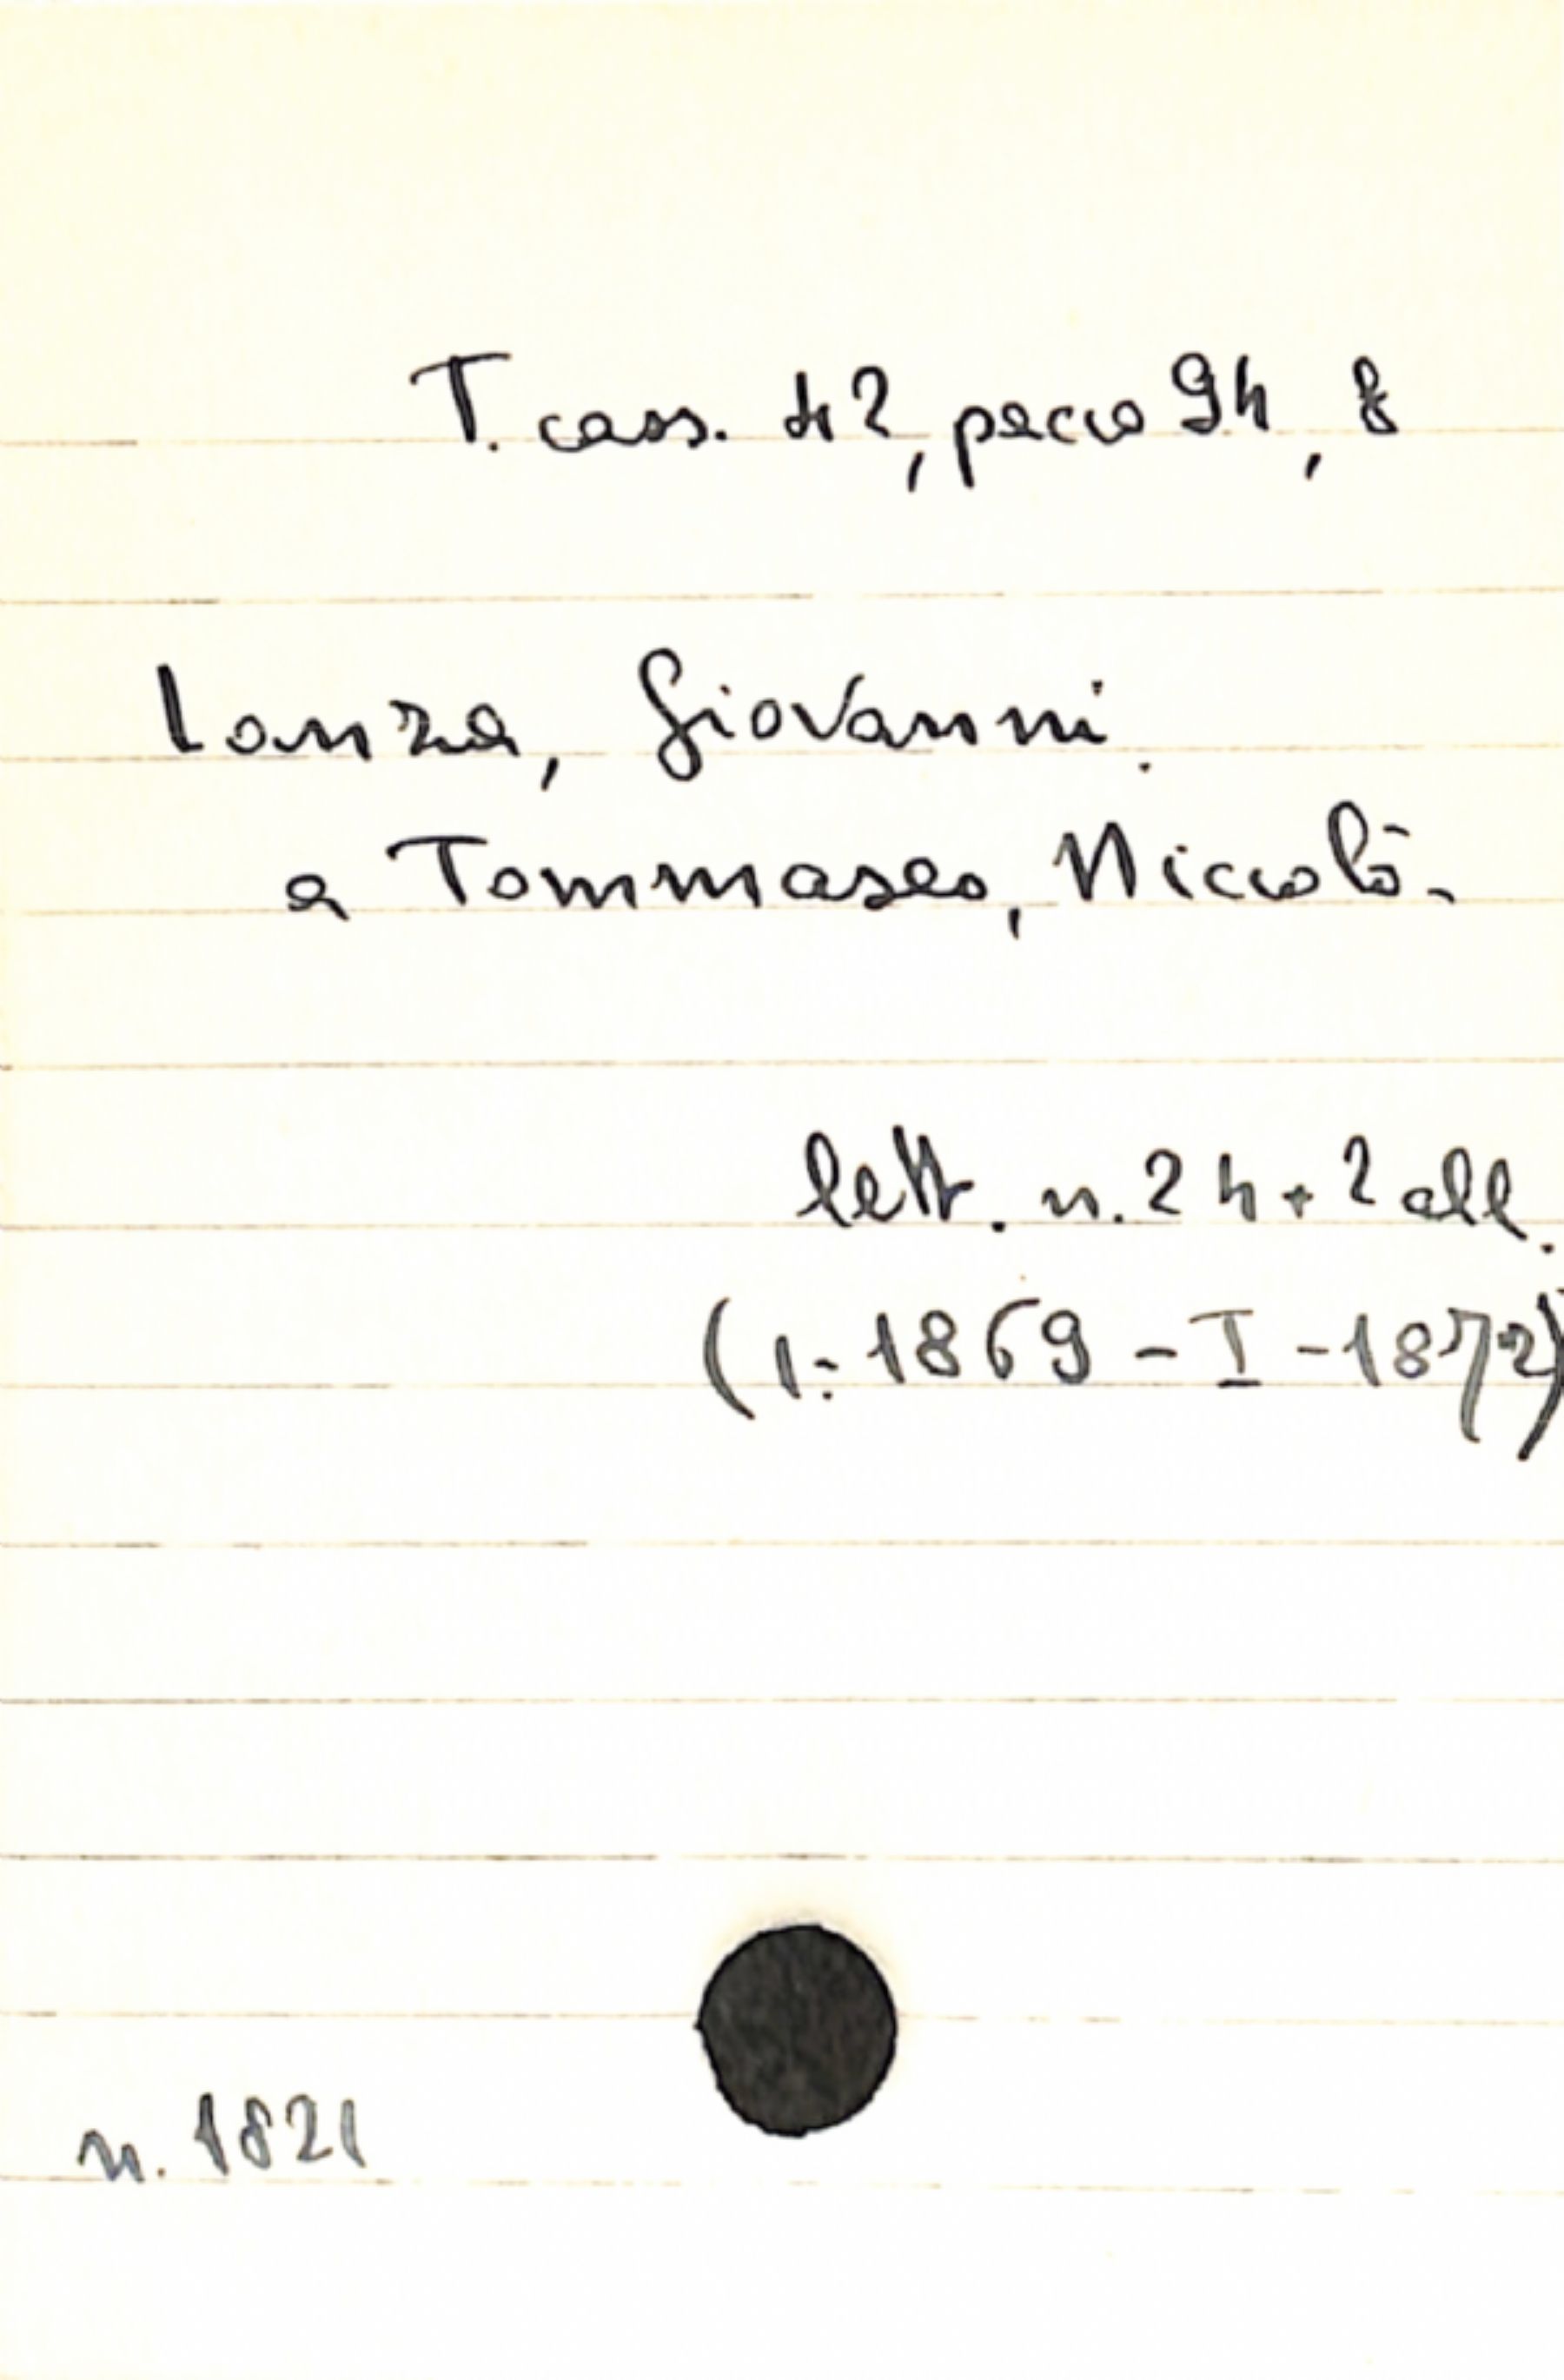 T. cass. 42, pacco 94, 8
Lanza, Giovanni.
a Tommaseo, Niccolò.
lett. n. 24 + 2 all.
(1: 1869 - I - 1872)
n. 1821